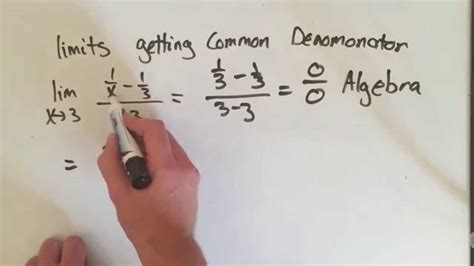 limits getting Common Denomonator
lim x→3 (1/x - 1/3)/3 = (1/3 - 1/3)/(3-3) = 0/0 Algebra
=